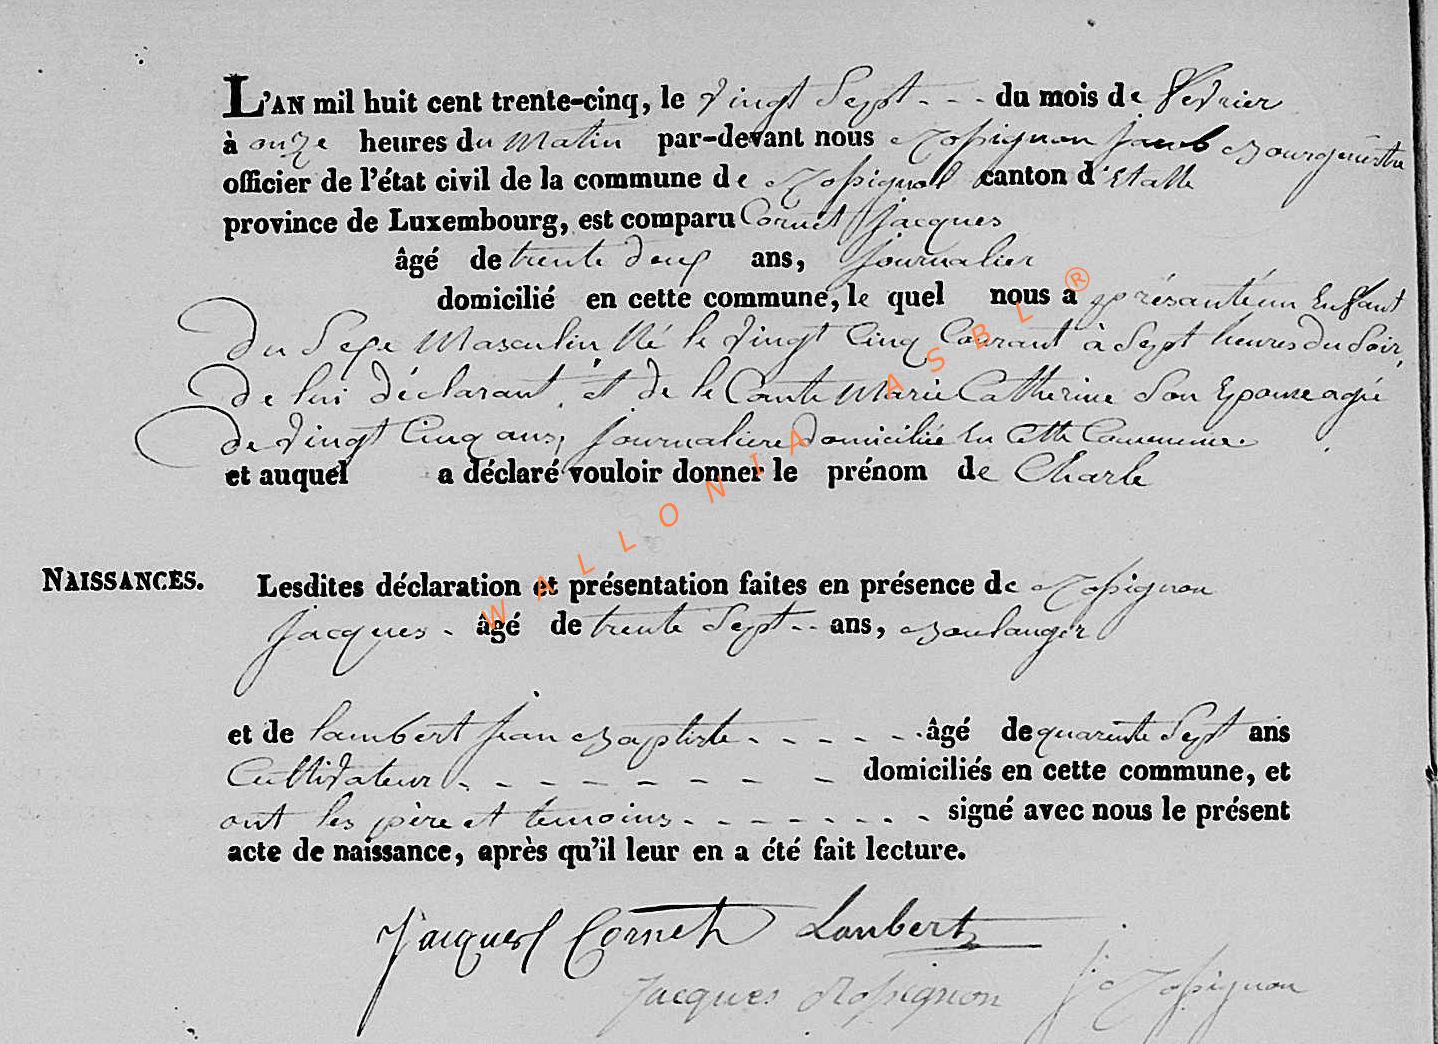 L'AN mil huit cent trente-cinq, le vingt Sept - - - du mois de fevrier
à onze heures du Matin par-devant nous Rossignon Jacob Bourguestre
officier de l'état civil de la commune de Rossignol canton d'Etalle
province de Luxembourg, est comparu Cornet Jacques
âgé de trente deux ans, journalier
domicilié en cette commune, le quel nous a présanté un Enfant
Du Sexe Masculin Né le vingt Cinq Courant à Sept heures Du Soir,
De lui déclarant, et de le Conte Marie Catherine Son Epouse agée
de vingt Cinq ans, journaliere domiciliée En Cette Commune.
et auquel a déclaré vouloir donner le prénom de Charle
NAISSANCES. Lesdites déclaration et présentation faites en présence de Rossignon
Jacques - âgé de trente Sept - - ans, Boulanger
et de lambert jean Baptiste - - - - - - âgé de quarente Sept ans
Cultivateur - - - - - - - - - domiciliés en cette commune, et
ont les père et temoins - - - - - - - - signé avec nous le présent
acte de naissance, après qu'il leur en a été fait lecture.
Jacques Cornet Lambert
Jacques Rossignon J Rossignon
WALLONIA ASBL ®